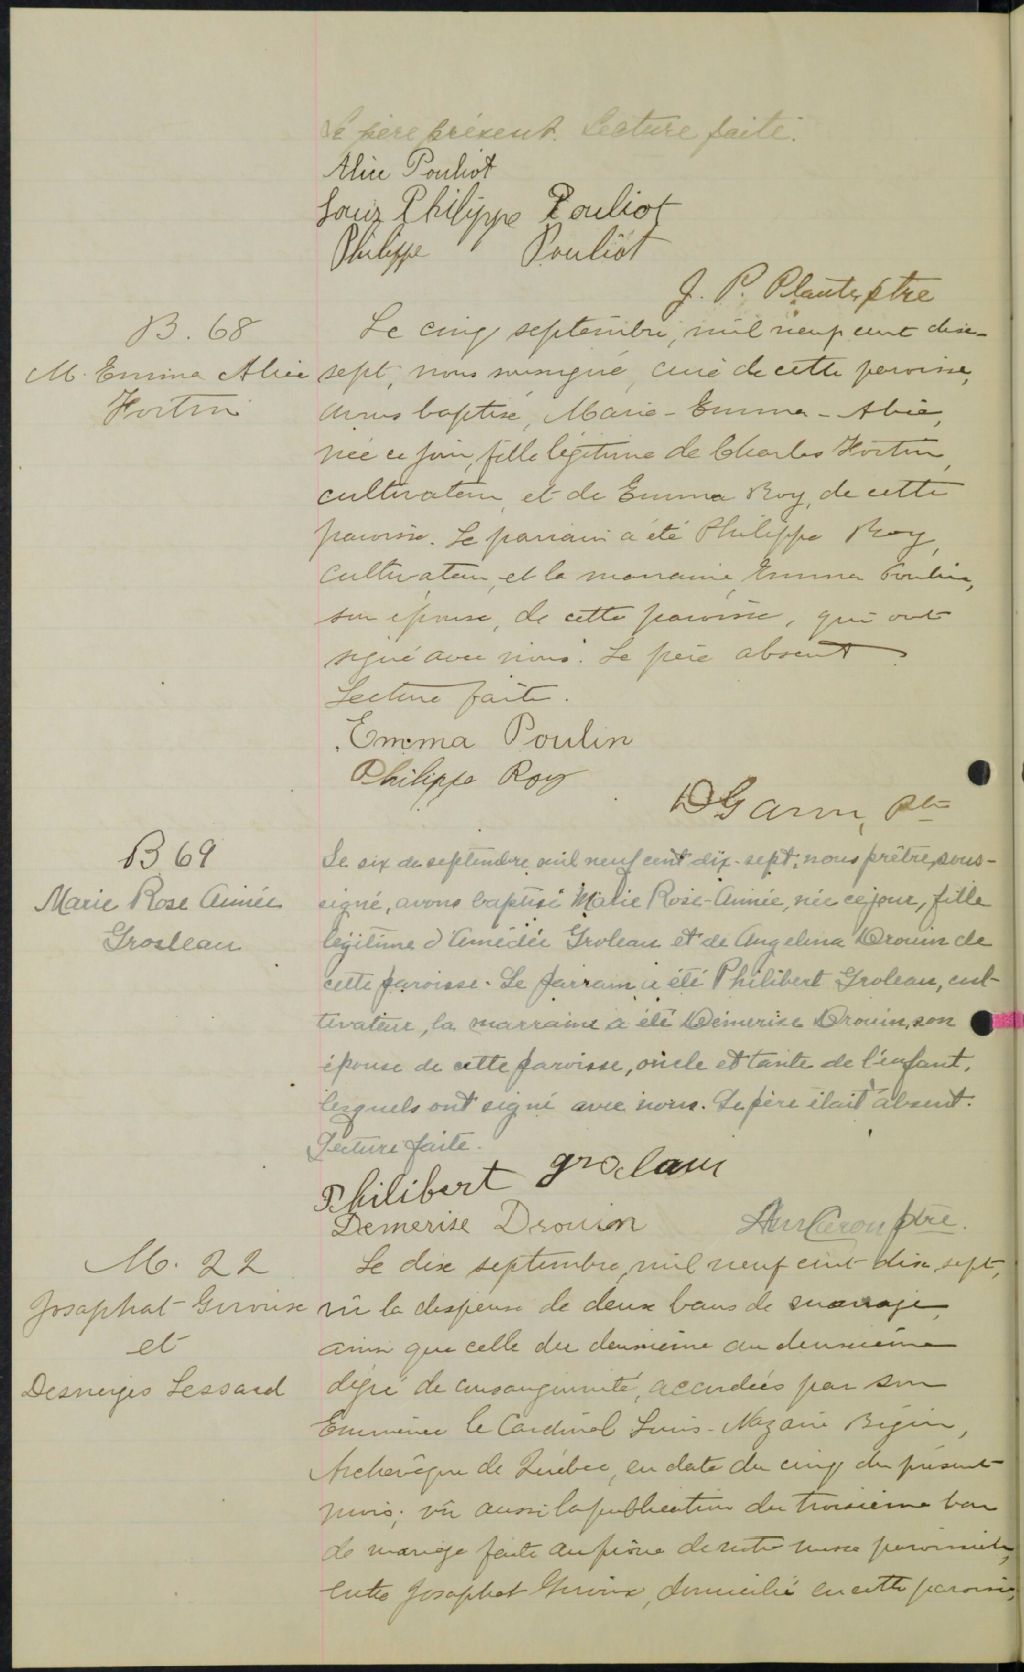 Le père présent. Lecture faite.
Alice Pouliot
Louis Philippe Pouliot
Philippe Pouliot
J. P. Plante, ptre
B. 68
M. Emma Alice
Fortin
Le cinq septembre, mil neuf cent dix-
sept, nous soussigné, curé de cette paroisse,
avons baptisé, Marie-Emma-Alice,
née ce jour, fille légitime de Charles Fortin,
cultivateur, et de Emma Roy, de cette
paroisse. Le parrain a été Philippe Roy,
cultivateur, et la marraine, Emma Poulin,
son épouse, de cette paroisse, qui ont
signé avec nous. Le père absent.
Lecture faite.
Emma Poulin
Philippe Roy
Ptre
B 69
Marie Rose Aimée
Grosleau
Le six de septembre mil neuf cent dix-sept, nous prêtre, sous-
signé, avons baptisé Marie Rose-Aimée, née ce jour, fille
légitime d'Amédée Groleau et de Angelina Drouin de
cette paroisse. Le parrain a été Philibert Groleau, cul-
tivateur, la marraine a été Démerise Drouin, son
épouse de cette paroisse, oncle et tante de l'enfant,
lesquels ont signé avec nous. Le père était absent.
Lecture faite.
Philibert Grolau
Demerise Drouin
Caron ptre.
M. 22
Josaphat Giroux
et
Desneiges Lessard
Le dix septembre, mil neuf cent dix sept,
vu la dispense de deux bans de mariage,
ainsi que celle du deuxième au deuxième
dégré de consanguinité, accordées par son
Eminence le Cardinal Louis-Nazaire Bégin,
Archevêque de Québec, en date du cinq du présent
mois; vu aussi la publication du troisième ban
de mariage faite au prône de notre messe paroissiale,
entre Josaphat Giroux, domicilié en cette paroisse,